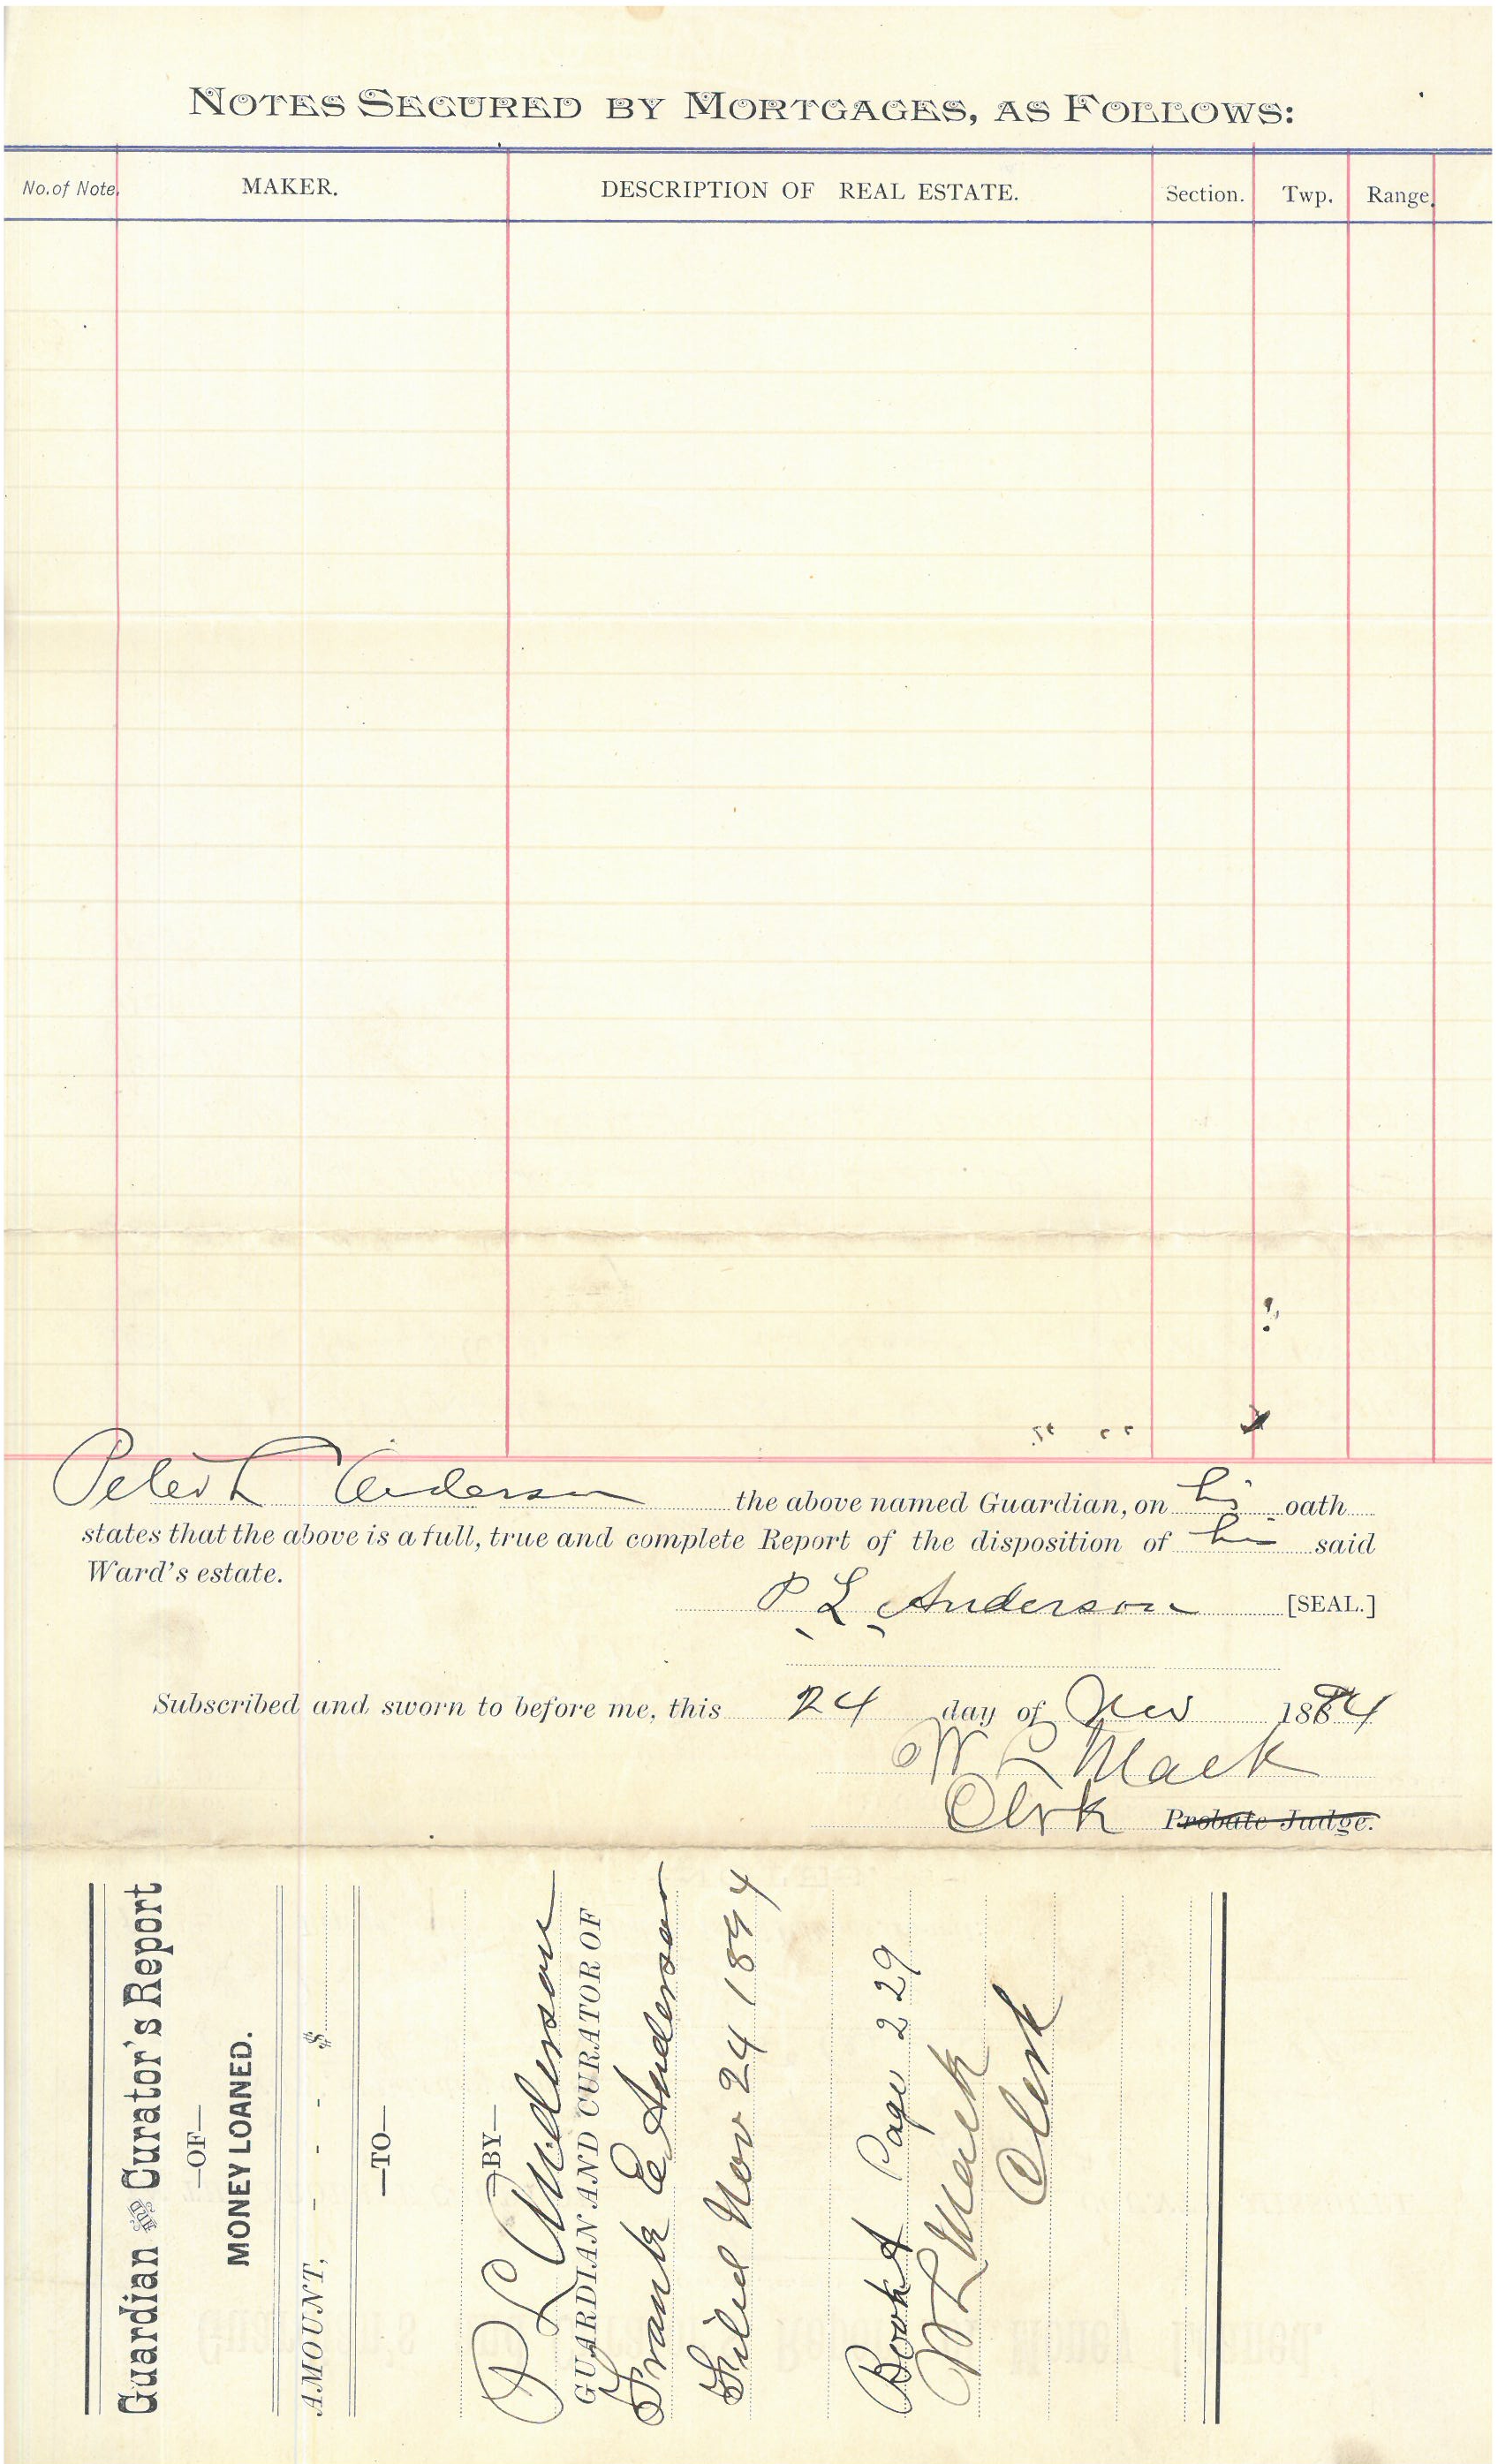 NOTES SECURED BY MORTGAGES, AS FOLLOWS:
No. of Note. MAKER. DESCRIPTION OF REAL ESTATE. Section. Twp. Range.
Peter L Anderson the above named Guardian, on his oath
states that the above is a full, true and complete Report of the disposition of his said
Ward's estate.
P L Anderson [SEAL.]
Subscribed and sworn to before me, this 24 day of Nov 1894
W L Mack
Clrk Probate Judge.
Guardian & Curator's Report
—OF—
MONEY LOANED.
AMOUNT, - - - $
—TO—
—BY—
P L Anderson
GUARDIAN AND CURATOR OF
Frank E Anderson
Filed Nov 24 1894
Book A Page 229
W L Mack
Clerk